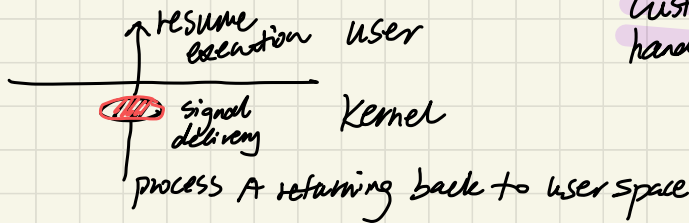 resume
execution
user
Cust
hand
signal
delivery
Kernel
process A returning back to user space